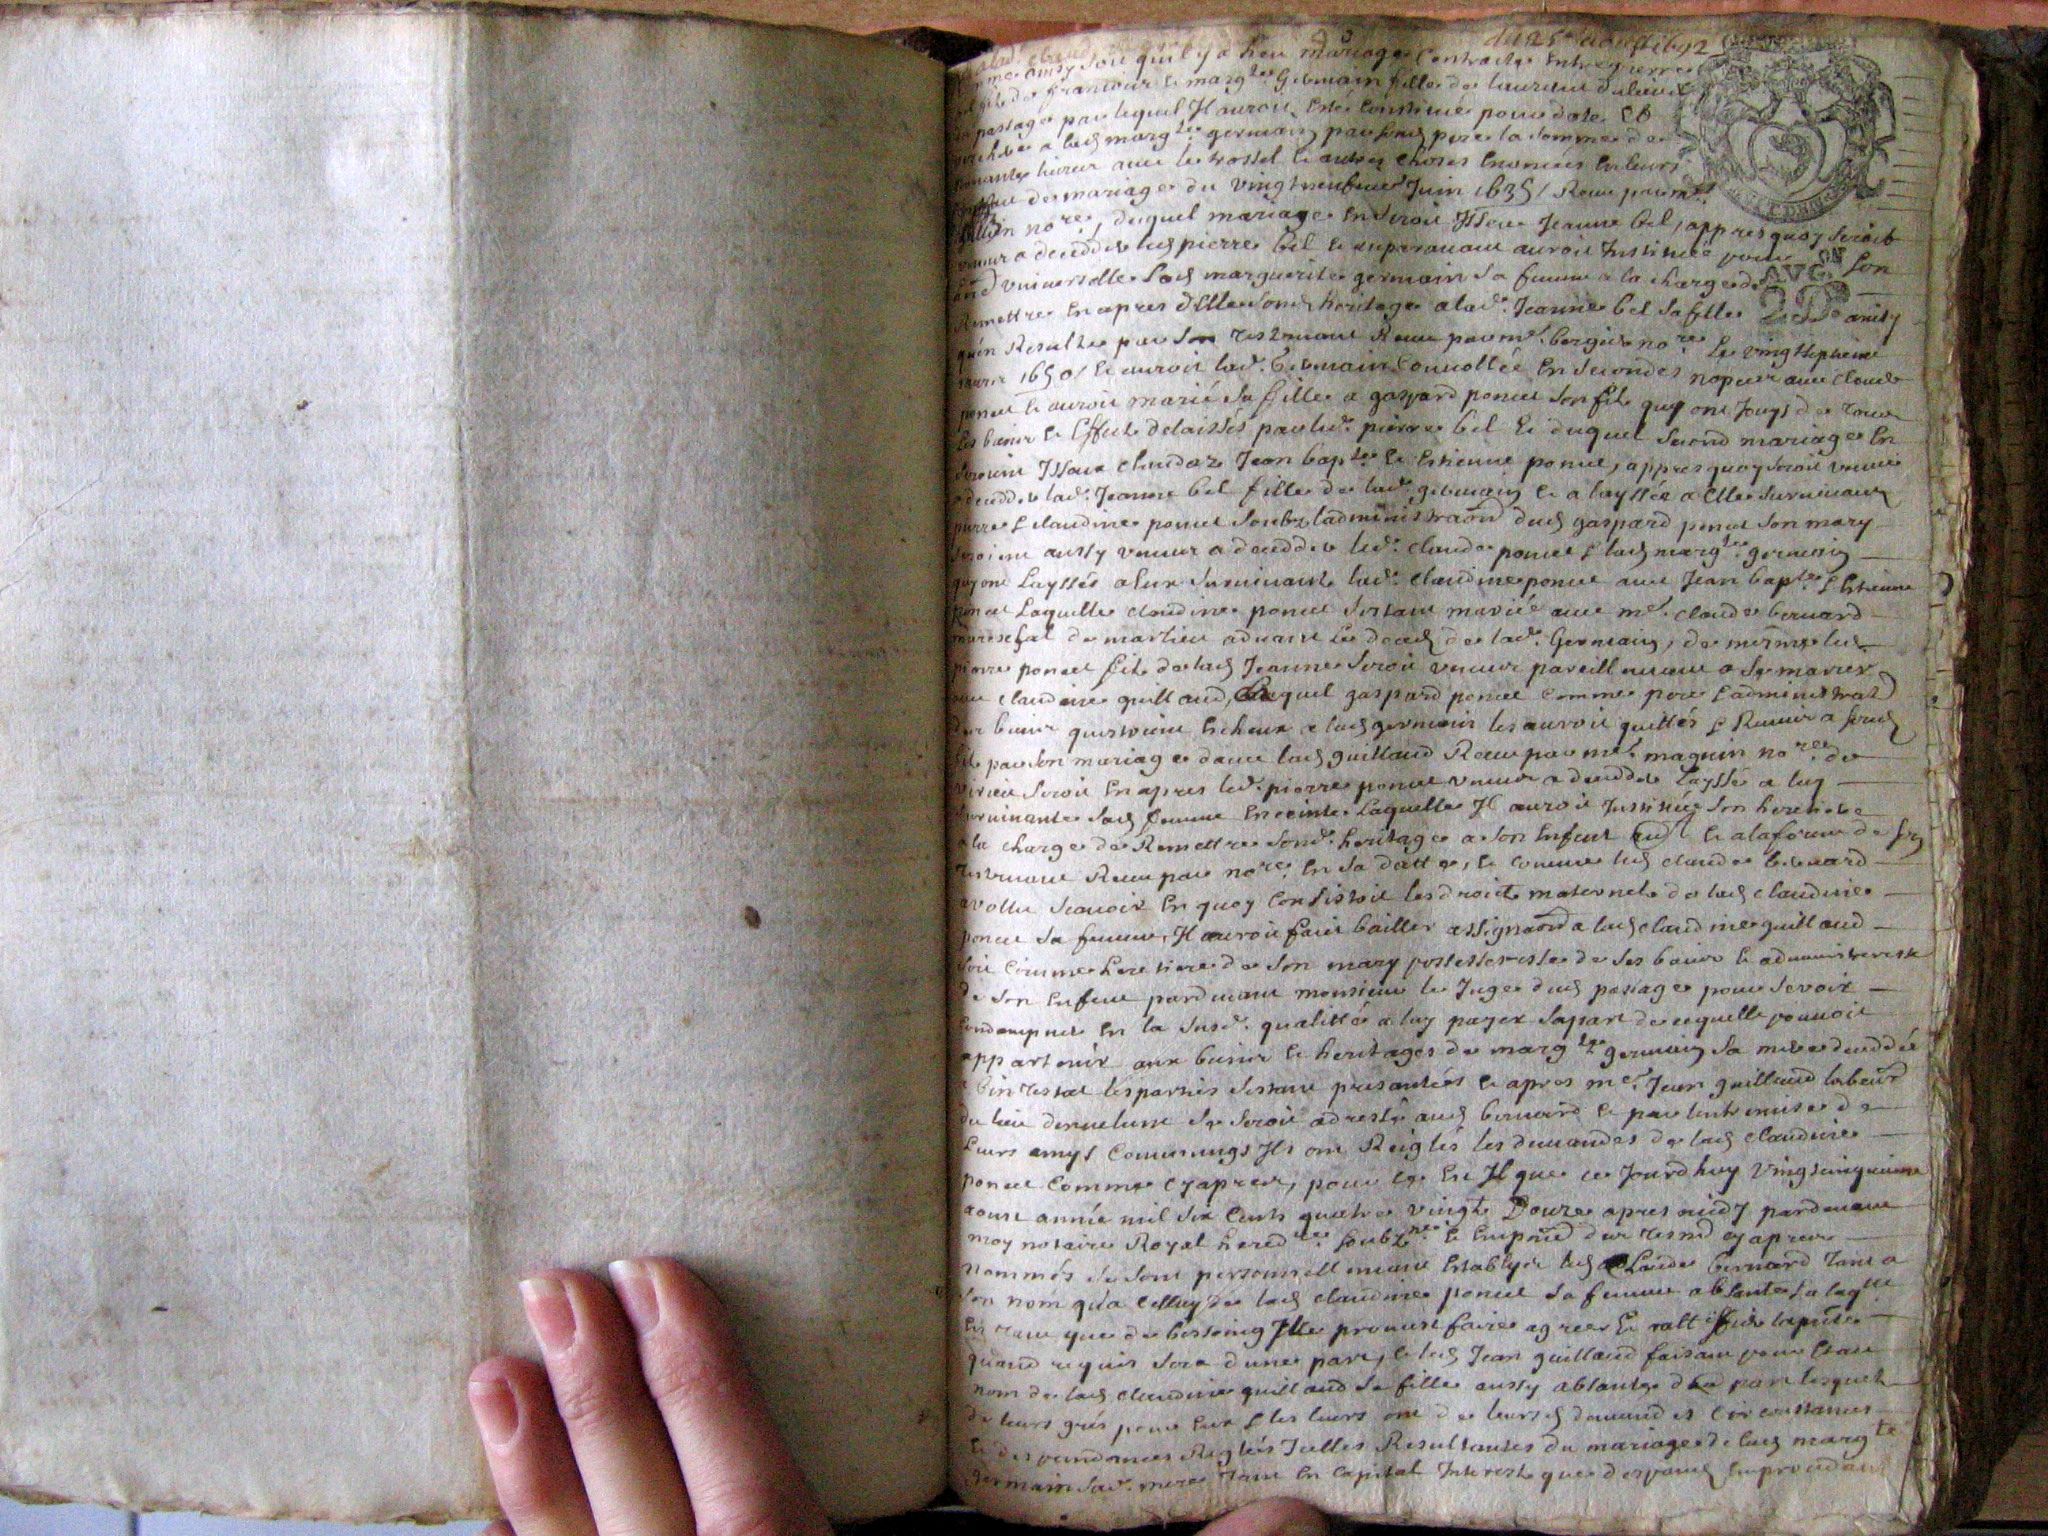 du 25e aoust 1692
comme ainsy soit quil y a heu mariage contracte entre pierre
bel fils de francois et margte Germain fille de laurent
du passage par lequel Il auroit esté constitué pour dote et
verchere a lad margte germain par sond pere la somme de
livres avec le trossel et autres choses enoncées en leurs
de mariage du vingtneufvieme Juin 1635 / Receu par me
nore, duquel mariage en seroit Issue Jeanne bel, appres quoy seroit
venu a decedder led pierre bel et auparavant auroit Institué pour son
universelle lad marguerite germain sa femme a la charge de
Remettre en apres dElle sond heritage a lad. Jeanne bel sa fille ainsy
quen Resulte par son testament Receu par me. nore le vingtseptieme
1650 / et auroit lad. Germain convollée en secondes nopces avec claude
poncet et auroit marié sa fille a gaspard poncet son fils quy ont Jouys de tous
les biens et Effects delaissés par led. pierre bel et duquel second mariage en
seroint Issus claudaz Jean bapte et estienne poncet, appres quoy seroit venue
a decedder lad. Jeanne bel fille de lad. germain et a layssée a Elle survivants
pierre et claudine poncet soubz ladministraon dud gaspard poncet son mary
seroient aussy venus a decedder led. claude poncet et lad margte germain
quy ont layssés a Eux survivants lad. claudine poncet avec Jean bapte et Estienne
poncet laquelle claudine poncet sestant mariée avec me. claude bernard
mareschal de advant le deced de lad. Germain, de mesme led
pierre poncet fils de lad Jeanne seroit venu pareillement a se marier
avec claudine guilland, lequel gaspard poncet comme pere et administrat
des biens questoient Escheux a lad germain les auroit quittés et Remis a sond
fils par son mariage davec lad guilland Receu par me maguin nore de
virieu seroit En apres led. pierre poncet venu a decedder laysse a luy
survivante sad femme Enceinte laquelle Il auroit Institué son heretiere
a la charge de Remettre sond. heritage a son Enfant et a la forme de son
testament Receu par nore. En sa datte, et comme led claude bernard
a vollu scavoir En quoy consistoit les droicts maternels de lad claudine
poncet sa femme, Il auroit faict bailler assignaon a lad claudine guilland
soit comme heretiere de son mary possesseresse de ses biens et administreresse
de son Enfant pardevant monsieur le Juge dud passage pour se voir
condampner En la susd. qualitté a luy payer sa part de ce quelle pouvoit
appartenir aux biens et heritages de margte germain sa mere deceddée
abintestat les parties sestant presantées et apres me. Jean guilland labeur
du lieu se seroit adressé aud bernard et par lentremise de
leurs amys commungs Ils ont Reiglés les demandes de lad claudine
poncet comme cy apres, pour ce Est Il que ce Jourdhuy vingtcinquieme
aoust année mil six cents quatre vingts Douze apres midy pardevant
moy notaire Royal hered.re soubzne. et En presence des tesmd cy apres
nommés se sont personnellement establys led Claude bernard tant a
son nom qua celluy de lad claudine poncet sa femme absante a laqlle
En tant que de bessoing Ille promest faire agreer et rattiffier la pnte
quand requis sera dune part, et led Jean guilland faisant pour Et au
nom de lad claudine guilland sa fille aussy absante daa part lesquels
de leurs grés pour Eux et les leurs ont de leursd demandes circonstances
et despendances Reglées Icelles Resultantes du mariage de lad margte
germain sad. mere tant En capital Interest que despans